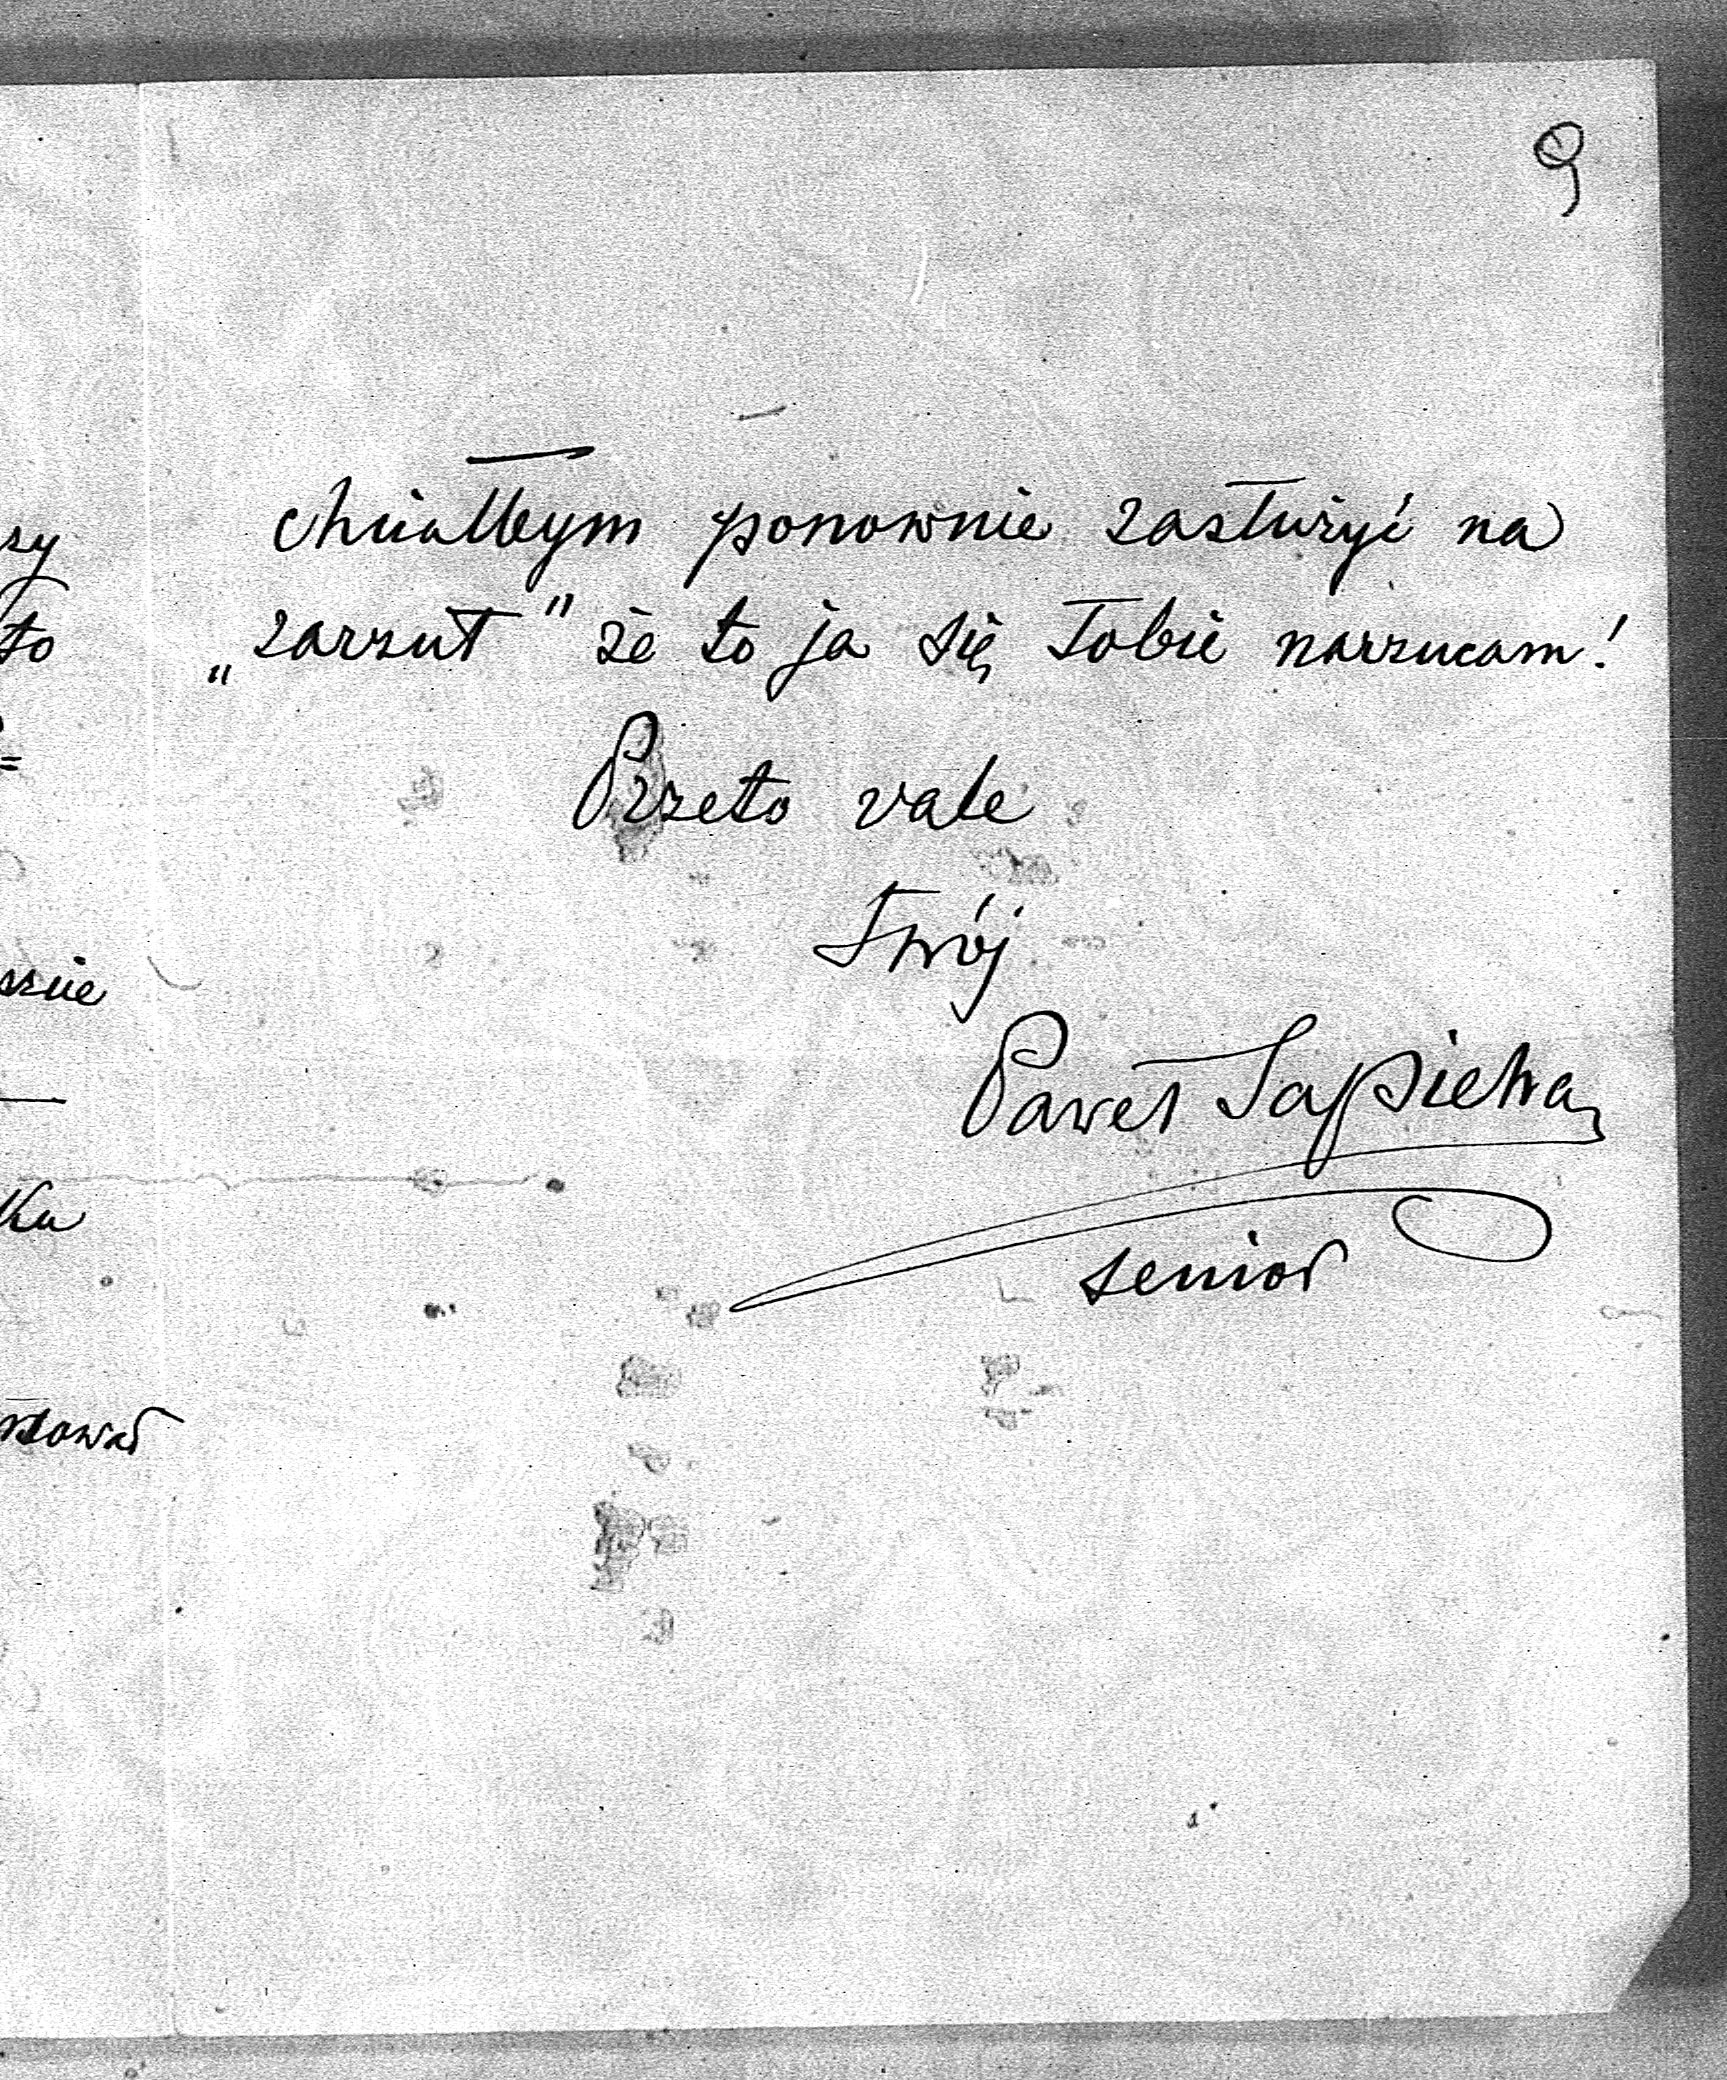 9
chciałbym ponownie zasłużyć na
„zarzut" że to ja się Tobie narzucam!
Przeto vale
Twój
Paweł Sapieha
senior
sy
to
=
ku